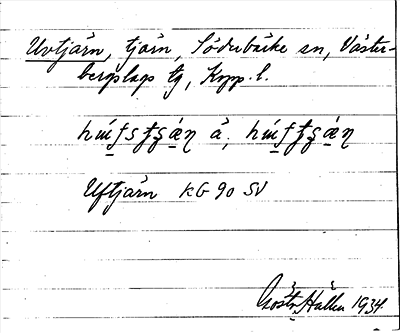 Uvtjärn, tjärn, Söderbärke sn, Väster-
bergslags tg, Kopp. l.
å,
Uftjärn KG 90 SV
Gösta Hallen 1934